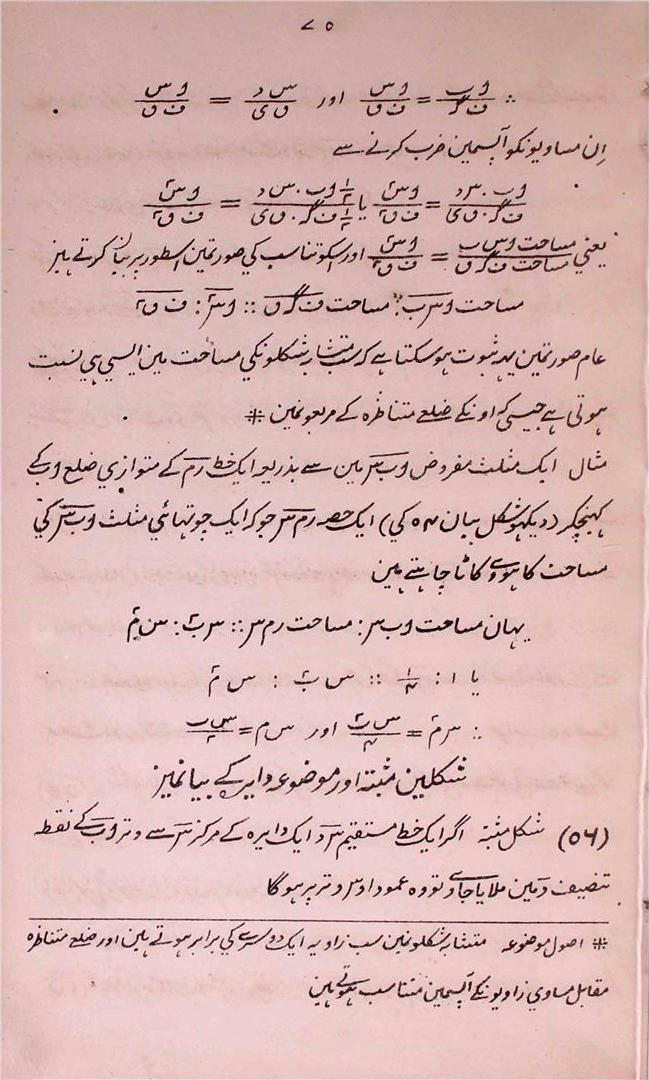 ٧٥
∵ اب/ف گ = اس/ف ق اور س د/ق ی = اس/ف ق
اِن مساویونکو آپسمین ضرب کرنے سے
اب . س د/ف گ . ق ی = اس٢/ف ق٢ یا ½ اب . س د/½ ف گ . ق ی = اس٢/ف ق٢
یعنی مساحت اس ب/مساحت ف گ ق = اس٢/ف ق٢ اور اسکو تناسب کي صورتمین اسطور پر بیان کرتے ہیز
مساحت اس ب : مساحت ف گ ق :: اس٢ : ف ق٢
عام صورتمین یہہ ثبوت ہو سکتا ہے کہ سب متشابہ شکلونکي مساحت مین ایسي ہي نسبت
ہوتی ہے جیسي کہ اونکے ضلع متناظرہ کے مربعونمین *
مثال ایک مثلث مفروض اب س مین سے بذریعہ ایک خط رم کے متوازي ضلع اب کے
کہینچکر (دیکہو شکل بیان ٥٤ کي) ایک حصہ رم س جو کہ ایک چوتہائي مثلث اب س کي
مساحت کا ہووے کاٹا چاہتے ہین
یہان مساحت اب س : مساحت رم س :: س ب٢ : س م٢
یا ١ : ¼ :: س ب٢ : س م٢
∴ س م٢ = س ب٢/٤ اور س م = س ب/٢
شکلین مثبتہ اور موضوعہ دایرہ کے بیانمیز
(٥٦) شکل مثبتہ اگر ایک خط مستقیم س د ایک دایرہ کے مرکز س سے وتر اب کے نقطہ
تنصیف د مین ملایا جاوے تو وہ عمود اوس وتر پر ہوگا
* اصول موضوعہ متشابہ شکلونمین سب زاویہ ایک دوسرے کي برابر ہوتے ہین اور ضلع متناظرہ
مقابل مساوي زاویونکے آپسمین متناسب ہوتے ہین